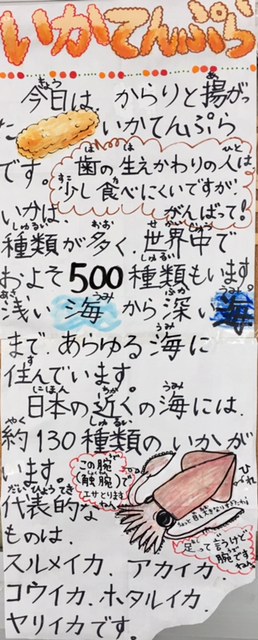 いかてんぷら
今日は、からりと揚がっ
た いかてんぷら
です。
歯の生えかわりの人は
少し食べにくいですが、
がんばって!
いかは、
種類が多く、世界中で
およそ500種類もいます。
浅い海から深い海
まで、あらゆる海に
住んでいます。
日本の近くの海には、
約130種類のいかが
います。
この腕
(触腕)で
エサとります
ひれ
代表的な
ものは、
足って言うけど
腕です
スルメイカ、アカイカ
コウイカ、ホタルイカ、
ヤリイカです。